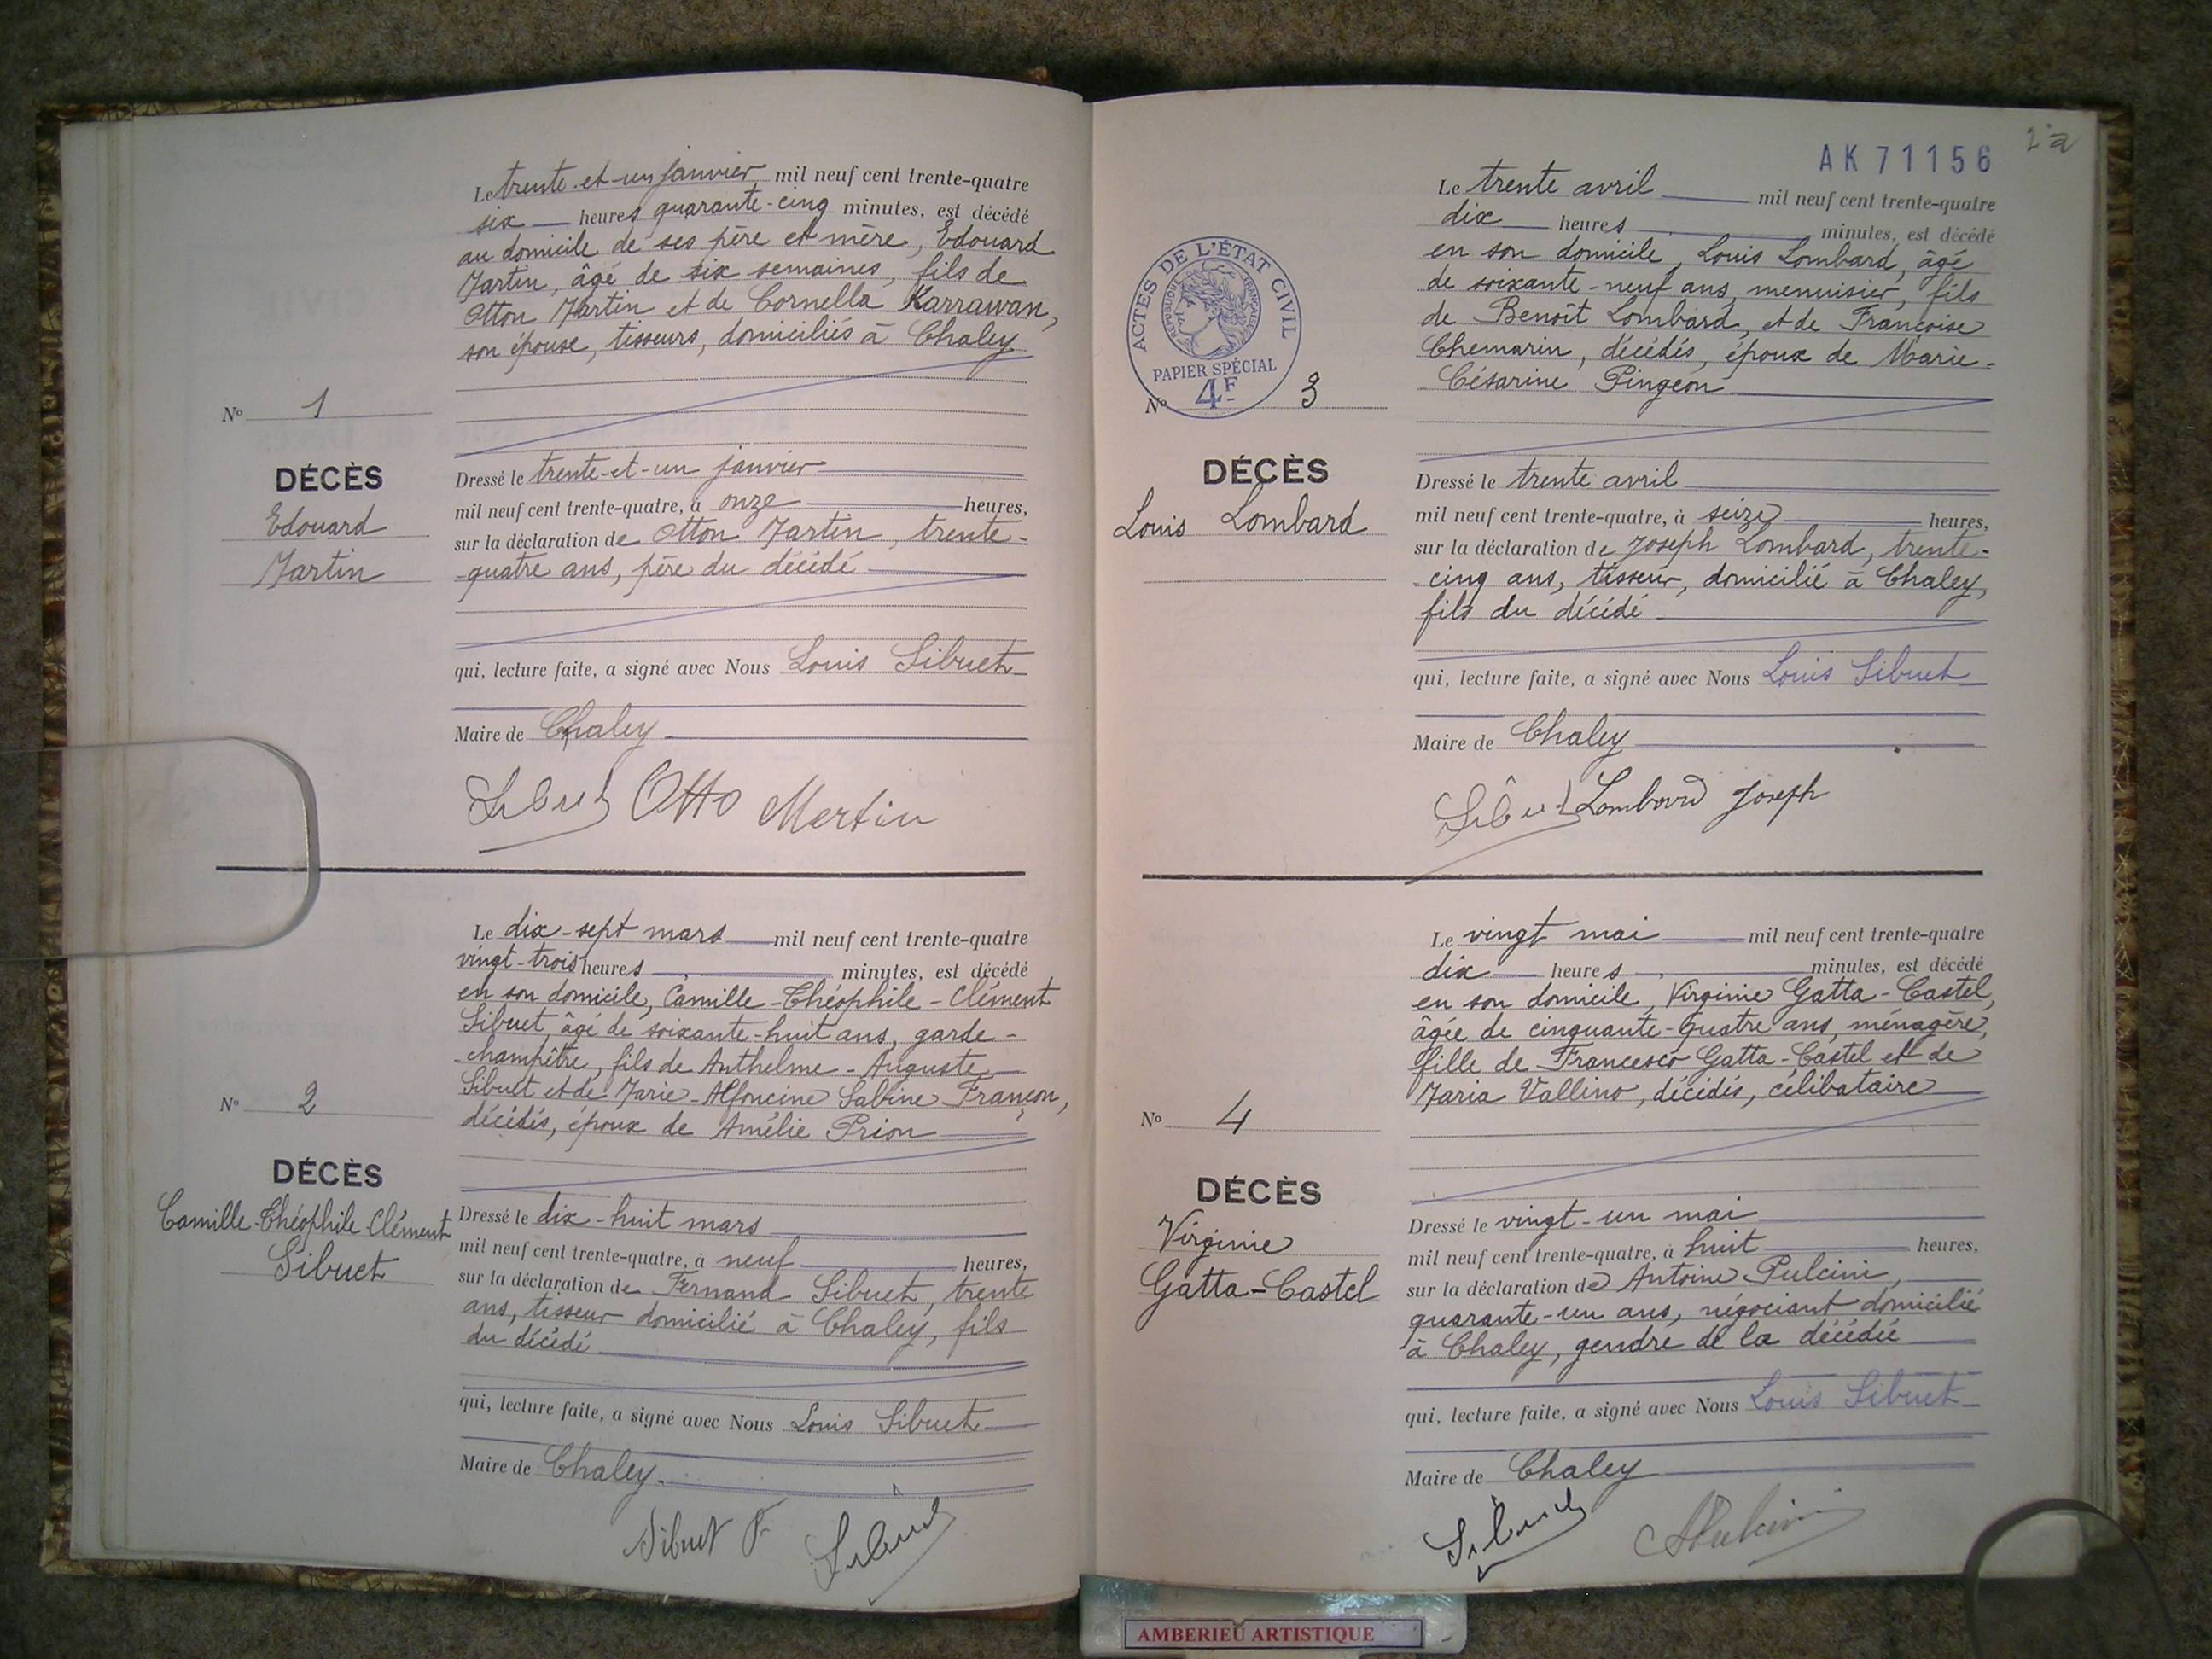 Le trente-et-un janvier mil neuf cent trente-quatre
six heures quarante-cinq minutes, est décédé
au domicile de ses père et mère, Edouard
Martin, âgé de six semaines, fils de
Otton Martin et de Cornella Karrawan,
son épouse, tisseurs, domiciliés à Chaley
N° 1
DÉCÈS
Edouard
Martin
Dressé le trente-et-un janvier
mil neuf cent trente-quatre, à onze heures,
sur la déclaration de Otton Martin, trente-
quatre ans, père du décédé
qui, lecture faite, a signé avec Nous Louis Sibuet
Maire de Chaley
Sibuet Otto Martin
Le dix-sept mars mil neuf cent trente-quatre
vingt-trois heures minutes, est décédé
en son domicile, Camille-Théophile-Clément
Sibuet, âgé de soixante-huit ans, garde-
champêtre, fils de Anthelme-Auguste
Sibuet et de Marie-Alfoncine Sabine Françon,
décédés, époux de Amélie Prion
N° 2
DÉCÈS
Camille-Théophile-Clément
Sibuet
Dressé le dix-huit mars
mil neuf cent trente-quatre, à neuf heures,
sur la déclaration de Fernand Sibuet, trente
ans, tisseur domicilié à Chaley, fils
du décédé
qui, lecture faite, a signé avec Nous Louis Sibuet
Maire de Chaley.
Sibuet F Sibuet
2
AK71156
Le trente avril mil neuf cent trente-quatre
dix heures minutes, est décédé
en son domicile, Louis Lombard, âgé
de soixante-neuf ans, menuisier, fils
de Benoît Lombard, et de Françoise
Chemarin, décédés, époux de Marie-
Césarine Pingeon
ACTES DE L'ÉTAT CIVIL
RÉPUBLIQUE FRANÇAISE
PAPIER SPÉCIAL
4F
N° 3
DÉCÈS
Louis Lombard
Dressé le trente avril
mil neuf cent trente-quatre, à seize heures,
sur la déclaration de Joseph Lombard, trente-
cinq ans, tisseur, domicilié à Chaley,
fils du décédé
qui, lecture faite, a signé avec Nous Louis Sibuet
Maire de Chaley
Sibuet Lombard Joseph
Le vingt mai mil neuf cent trente-quatre
dix heures minutes, est décédé
en son domicile, Virginie Gatta-Castel,
âgée de cinquante-quatre ans, ménagère,
fille de Francesco Gatta-Castel et de
Maria Vallino, décédés, célibataire
N° 4
DÉCÈS
Virginie
Gatta-Castel
Dressé le vingt-un mai
mil neuf cent trente-quatre, à huit heures,
sur la déclaration de Antoine Pulcini,
quarante-un ans, négociant domicilié
à Chaley, gendre de la décédée
qui, lecture faite, a signé avec Nous Louis Sibuet
Maire de Chaley
Sibuet APulcini
AMBERIEU ARTISTIQUE